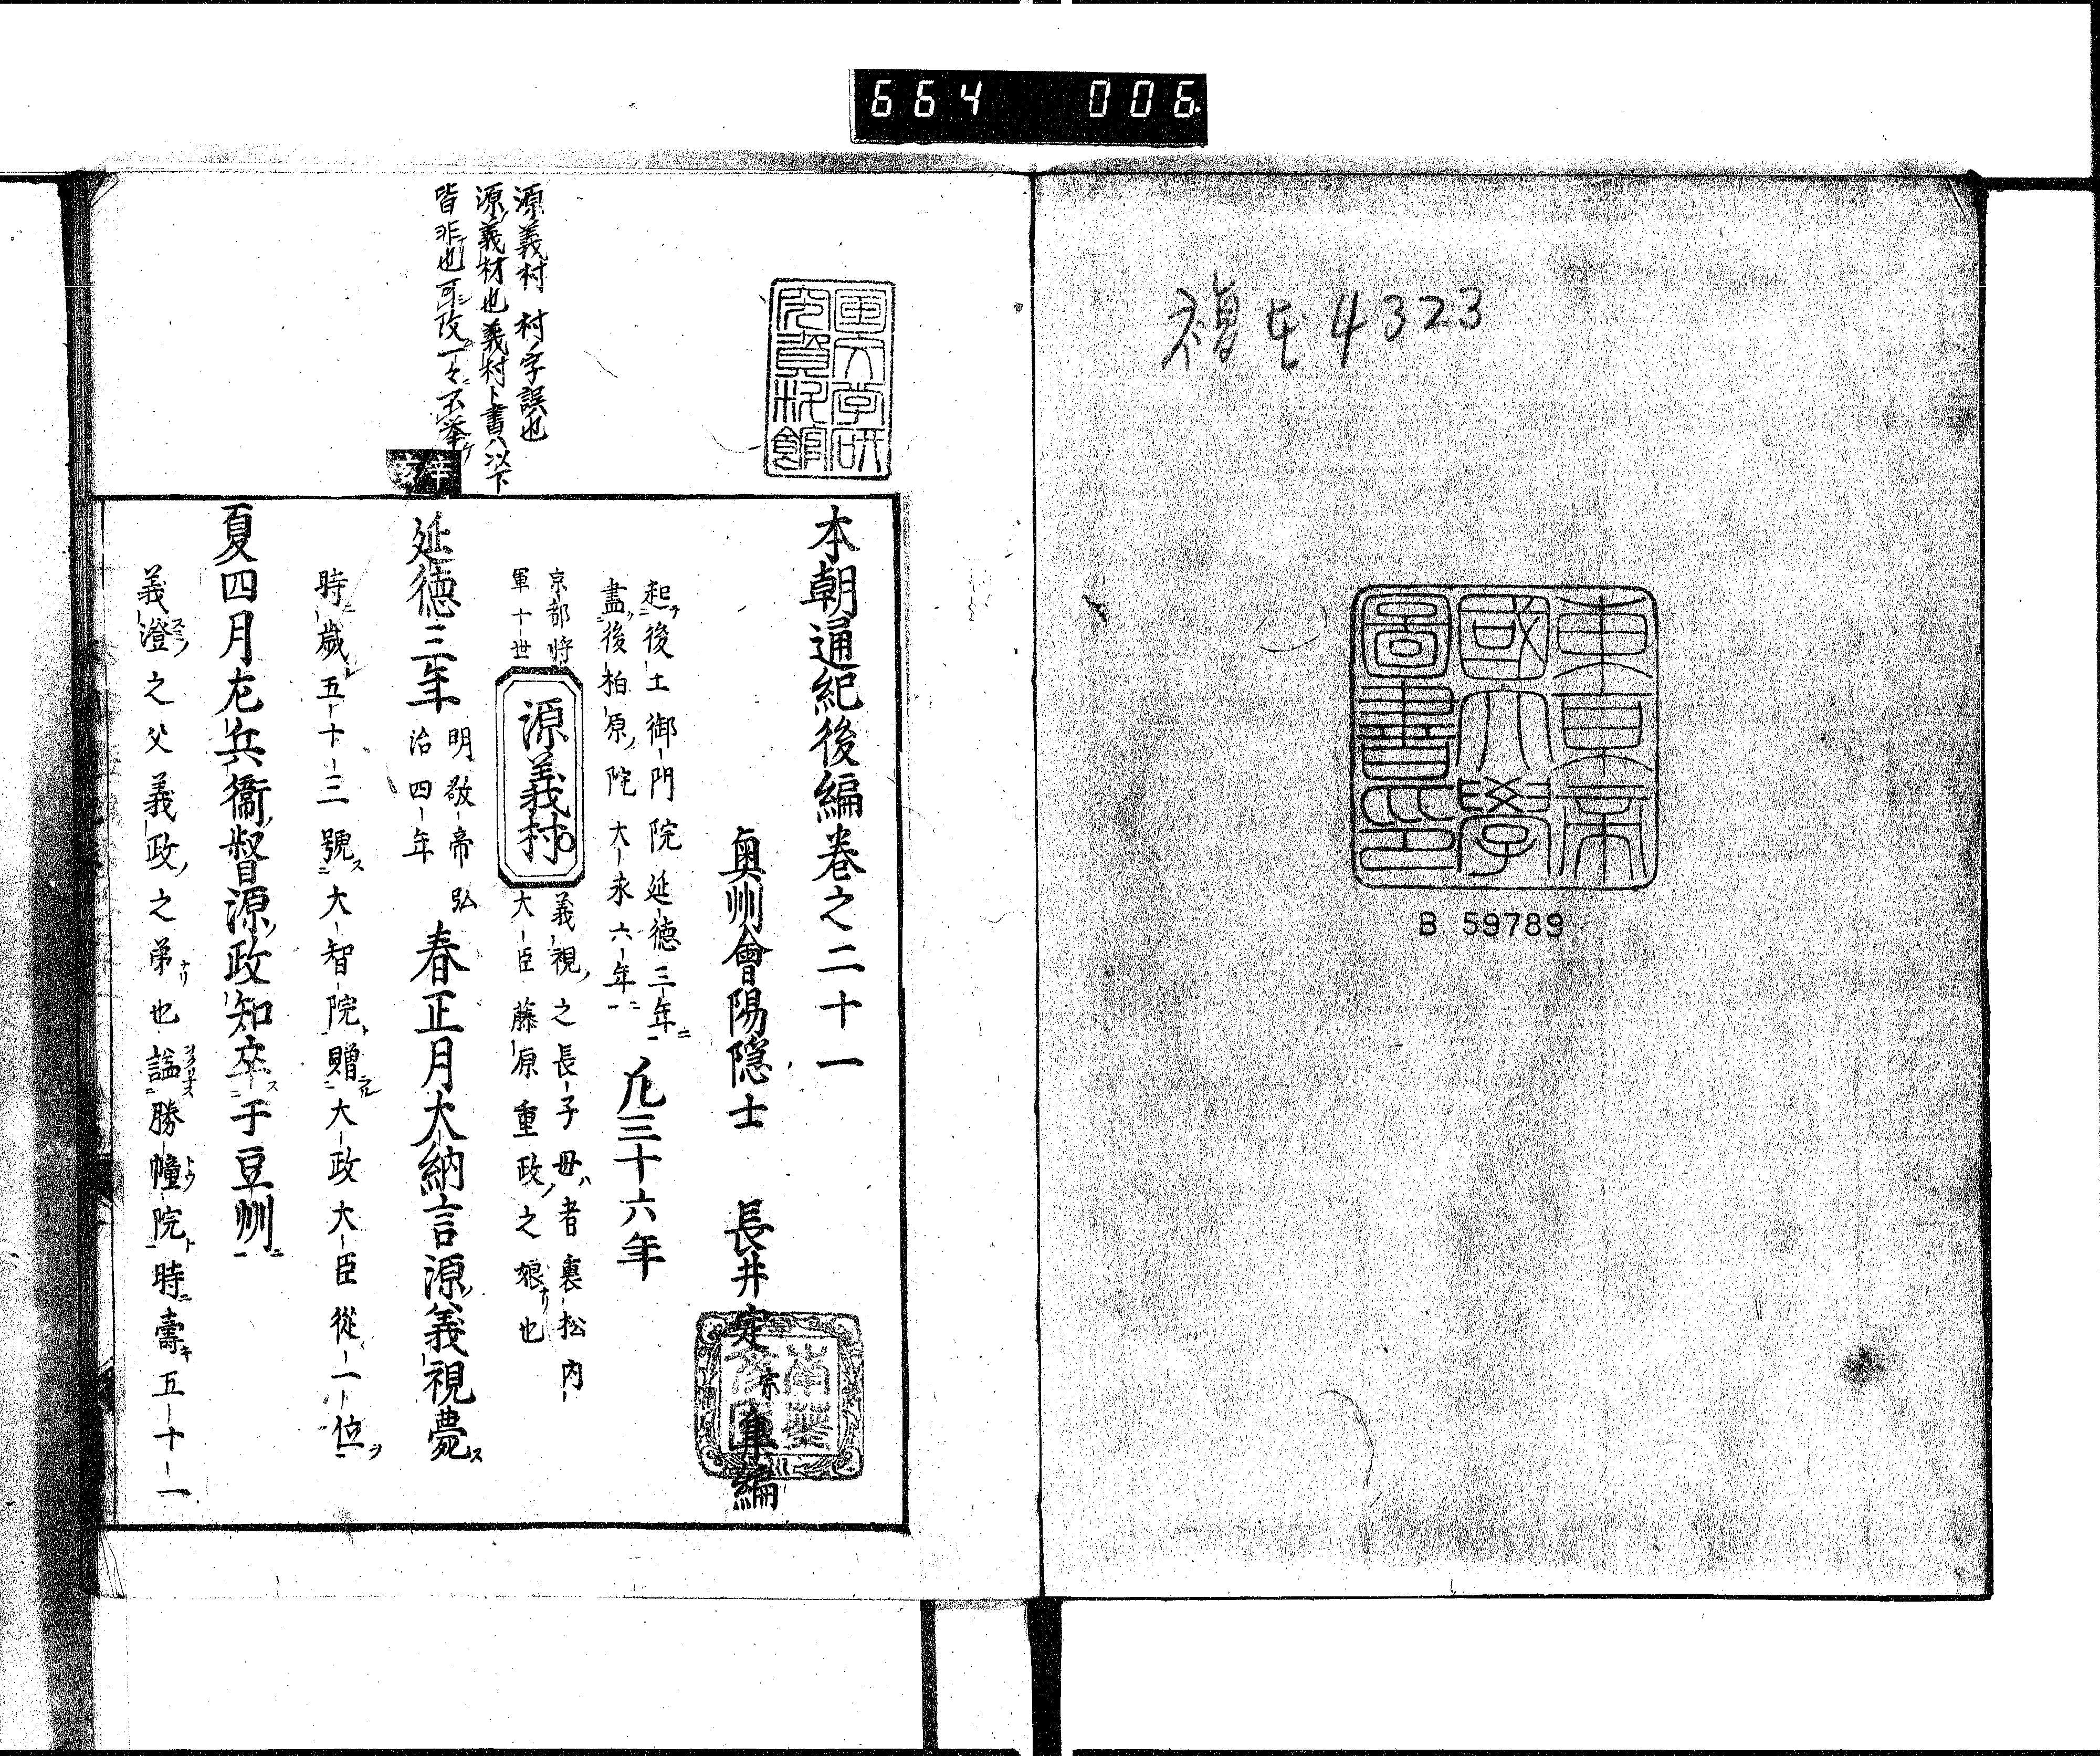 664 006
複生4323
東京帝
國大學
圖書印
B 59789
国文学研
究資料館
源義村 村ノ字誤也
源ノ義材也義村ト書ハ以下
皆非也可改一々不挙
辛亥
本朝通紀後編巻之二十一
奥州會陽隠士 長井定宗 編
起後土御門院延徳三年
盡後柏原院大永六年
凡三十六年
京都将
軍十世
源義村
義視之長子母者裏松内
大臣藤原重政之娘也
延徳三年
明敬帝弘
治四年
春正月大納言源義視薨
時歳五十三號大智院贈大政大臣從一位
夏四月左兵衞督源政知卒于豆州
義澄之父義政之弟也諡勝幢院時壽五十一